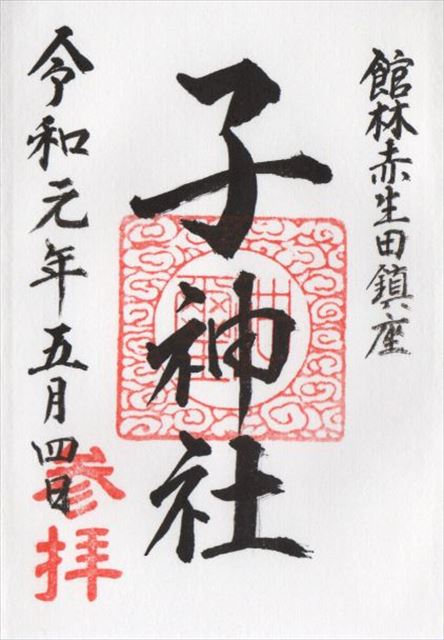 館林赤生田鎮座
子神社
令和元年五月四日
参拝